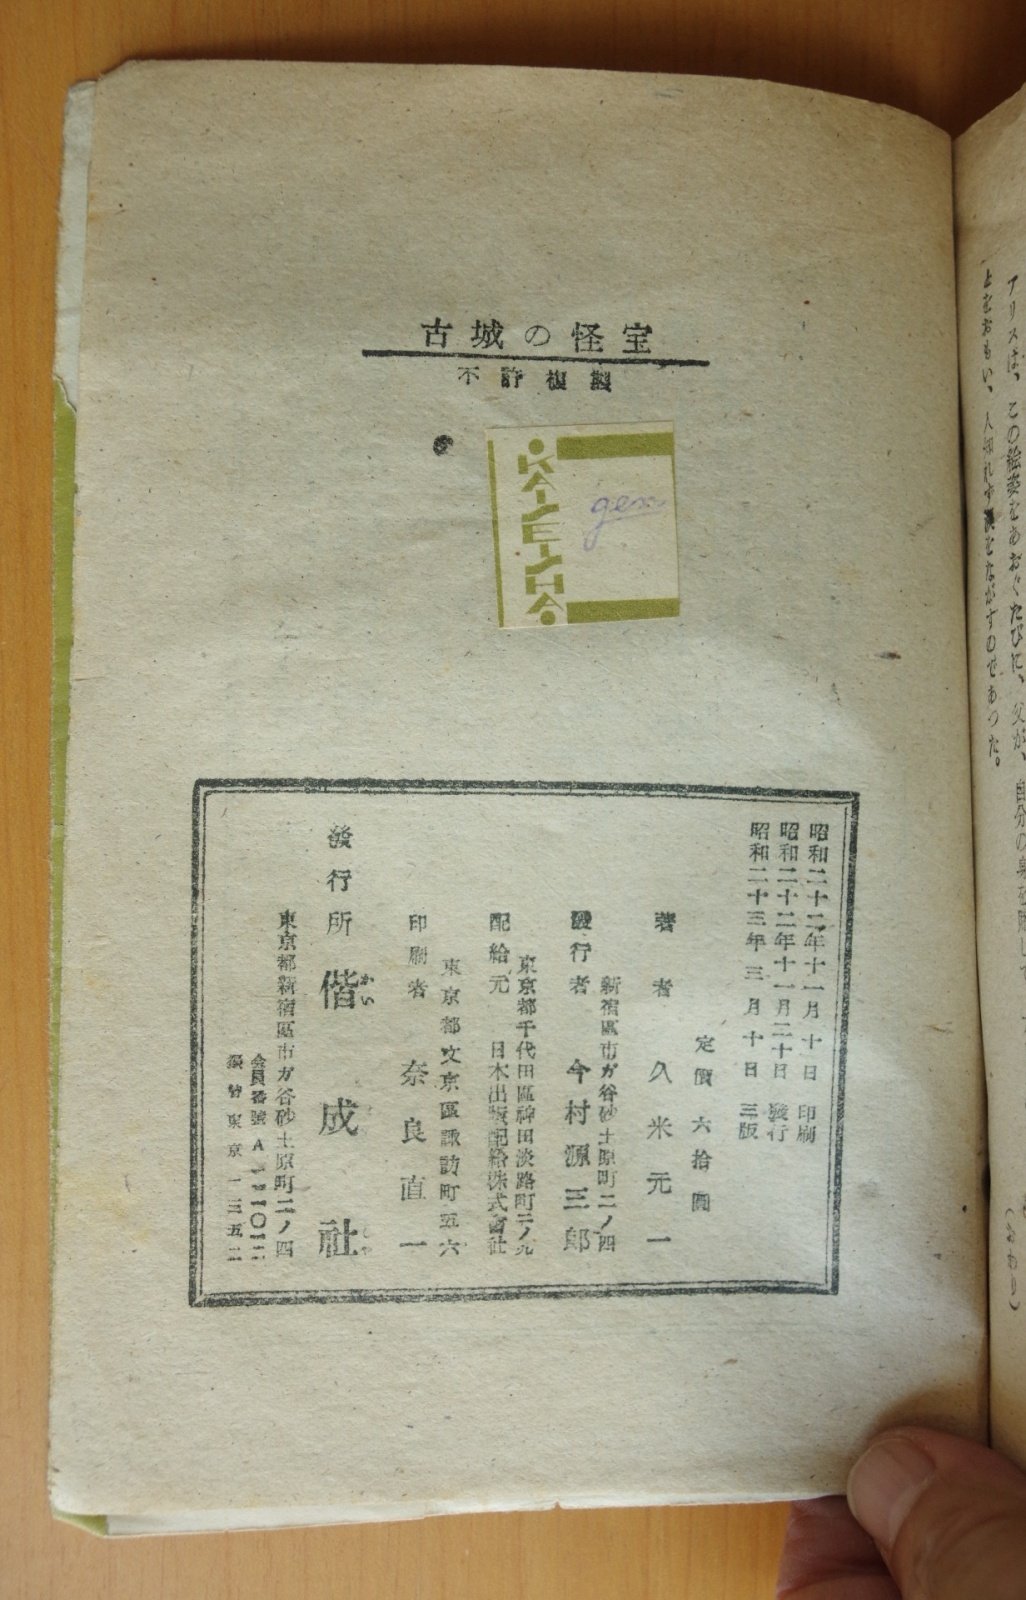 アリスは、この絵姿をあおぐたびに、父が、自分の身を
とをおもい、人知れず涙をながすのであつた。
（おわり）
古城の怪宝
不許複製
KAISEISHA
gen
昭和二十二年十一月十日 印刷
昭和二十二年十一月二十日 發行
昭和二十三年三月十日 三版
定價六拾圓
著者 久米元一
新宿區市ガ谷砂土原町二ノ四
發行者 今村源三郎
東京都千代田區神田淡路町二ノ九
配給元 日本出版配給株式會社
東京都文京區諏訪町五六
印刷者 奈良直一
發行所 偕成社
かい
東京都新宿區市ガ谷砂土原町二ノ四
会員番號A
振替東京一三五二